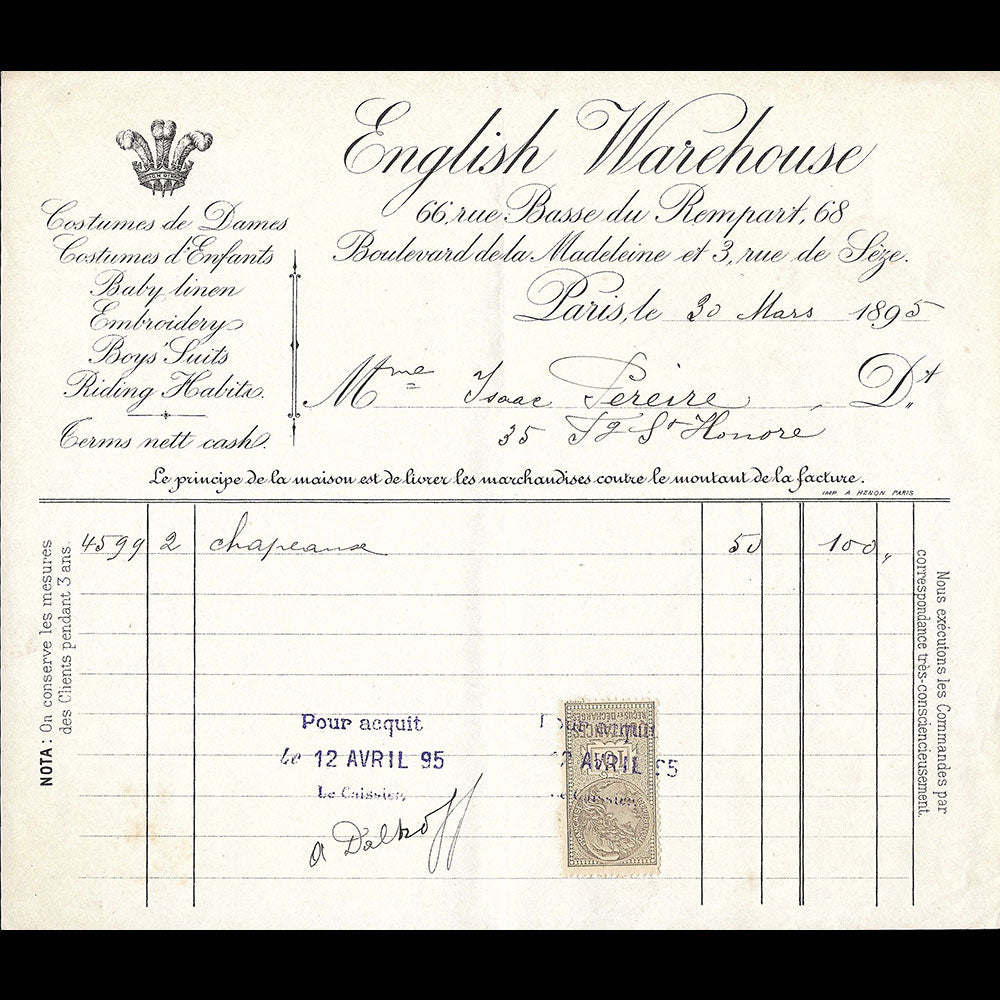 English Warehouse
66, rue Basse du Rempart, 68
Boulevard de la Madeleine et 3, rue de Sèze.
Costumes de Dames
Costumes d'Enfants
Baby linen
Embroidery
Boys' Suits
Riding Habits.
Terms nett cash.
Paris, le 30 Mars 1895
Mme Isaac Pereire, Dt
35 Fg St Honoré
Le principe de la maison est de livrer les marchandises contre le montant de la facture.
IMP. A. HENON PARIS
4599 2 chapeaux 50 100 "
NOTA: On conserve les mesures
des Clients pendant 3 ans.
Nous exécutons les Commandes par
correspondance très-consciencieusement.
Pour acquit
le 12 AVRIL 95
Le Caissier,
Pour acquit
12 AVRIL 95
Le Caissier,
QUITTANCES
REÇUS ET DÉCHARGES
10c